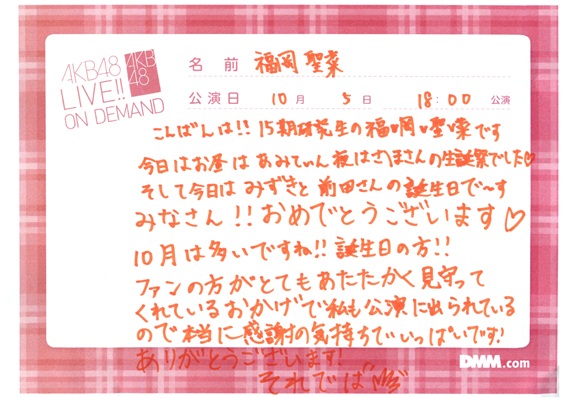 AKB48
LIVE!!
ON DEMAND
AKB
48
名 前 福岡 聖菜
公演日 10月 5日 18:00 公演
こんばんは!! 15期研究生の福♥岡♥聖♥菜です
今日はお昼は あみてぃん 夜は さつまさんの生誕祭でした♡
そして今日は みずきと 前田さんの 誕生日で〜す
みなさん!! おめでとうございます♡
10月は多いですね!! 誕生日の方!!
ファンの方がとてもあたたかく見守って
くれているおかげで私も公演に出られている
ので本当に感謝の気持ちでいっぱいです!
ありがとうございます!
それでは
DMM.com